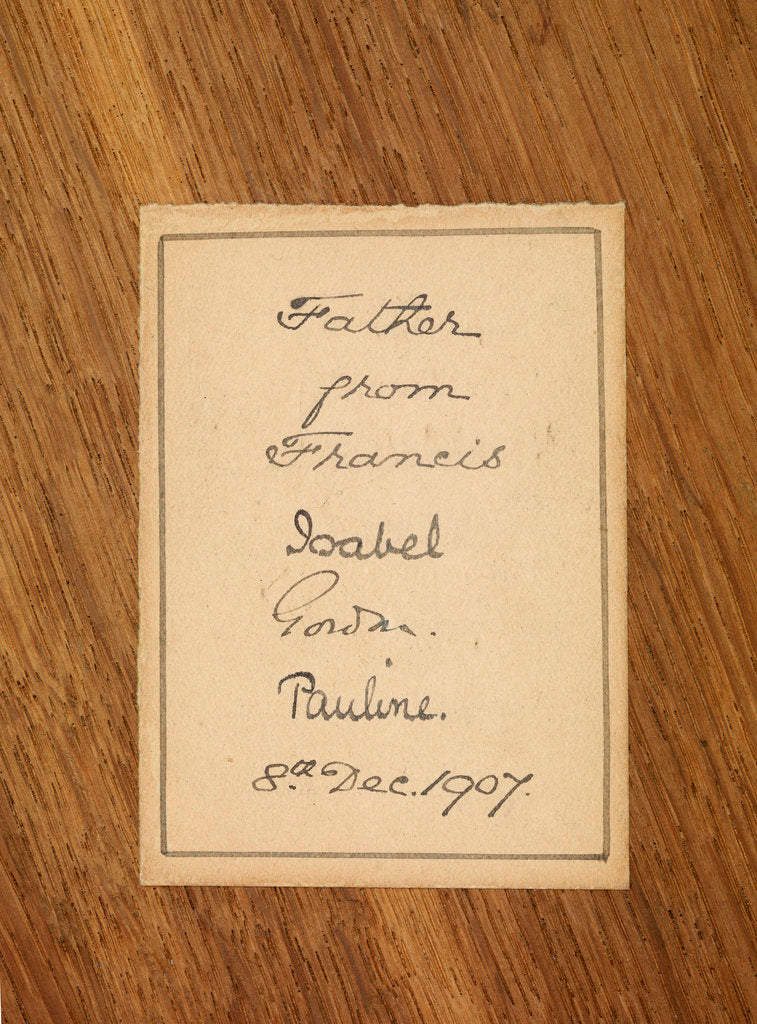 Father
from
Francis
Isabel
Gordon.
Pauline.
8th Dec. 1907.